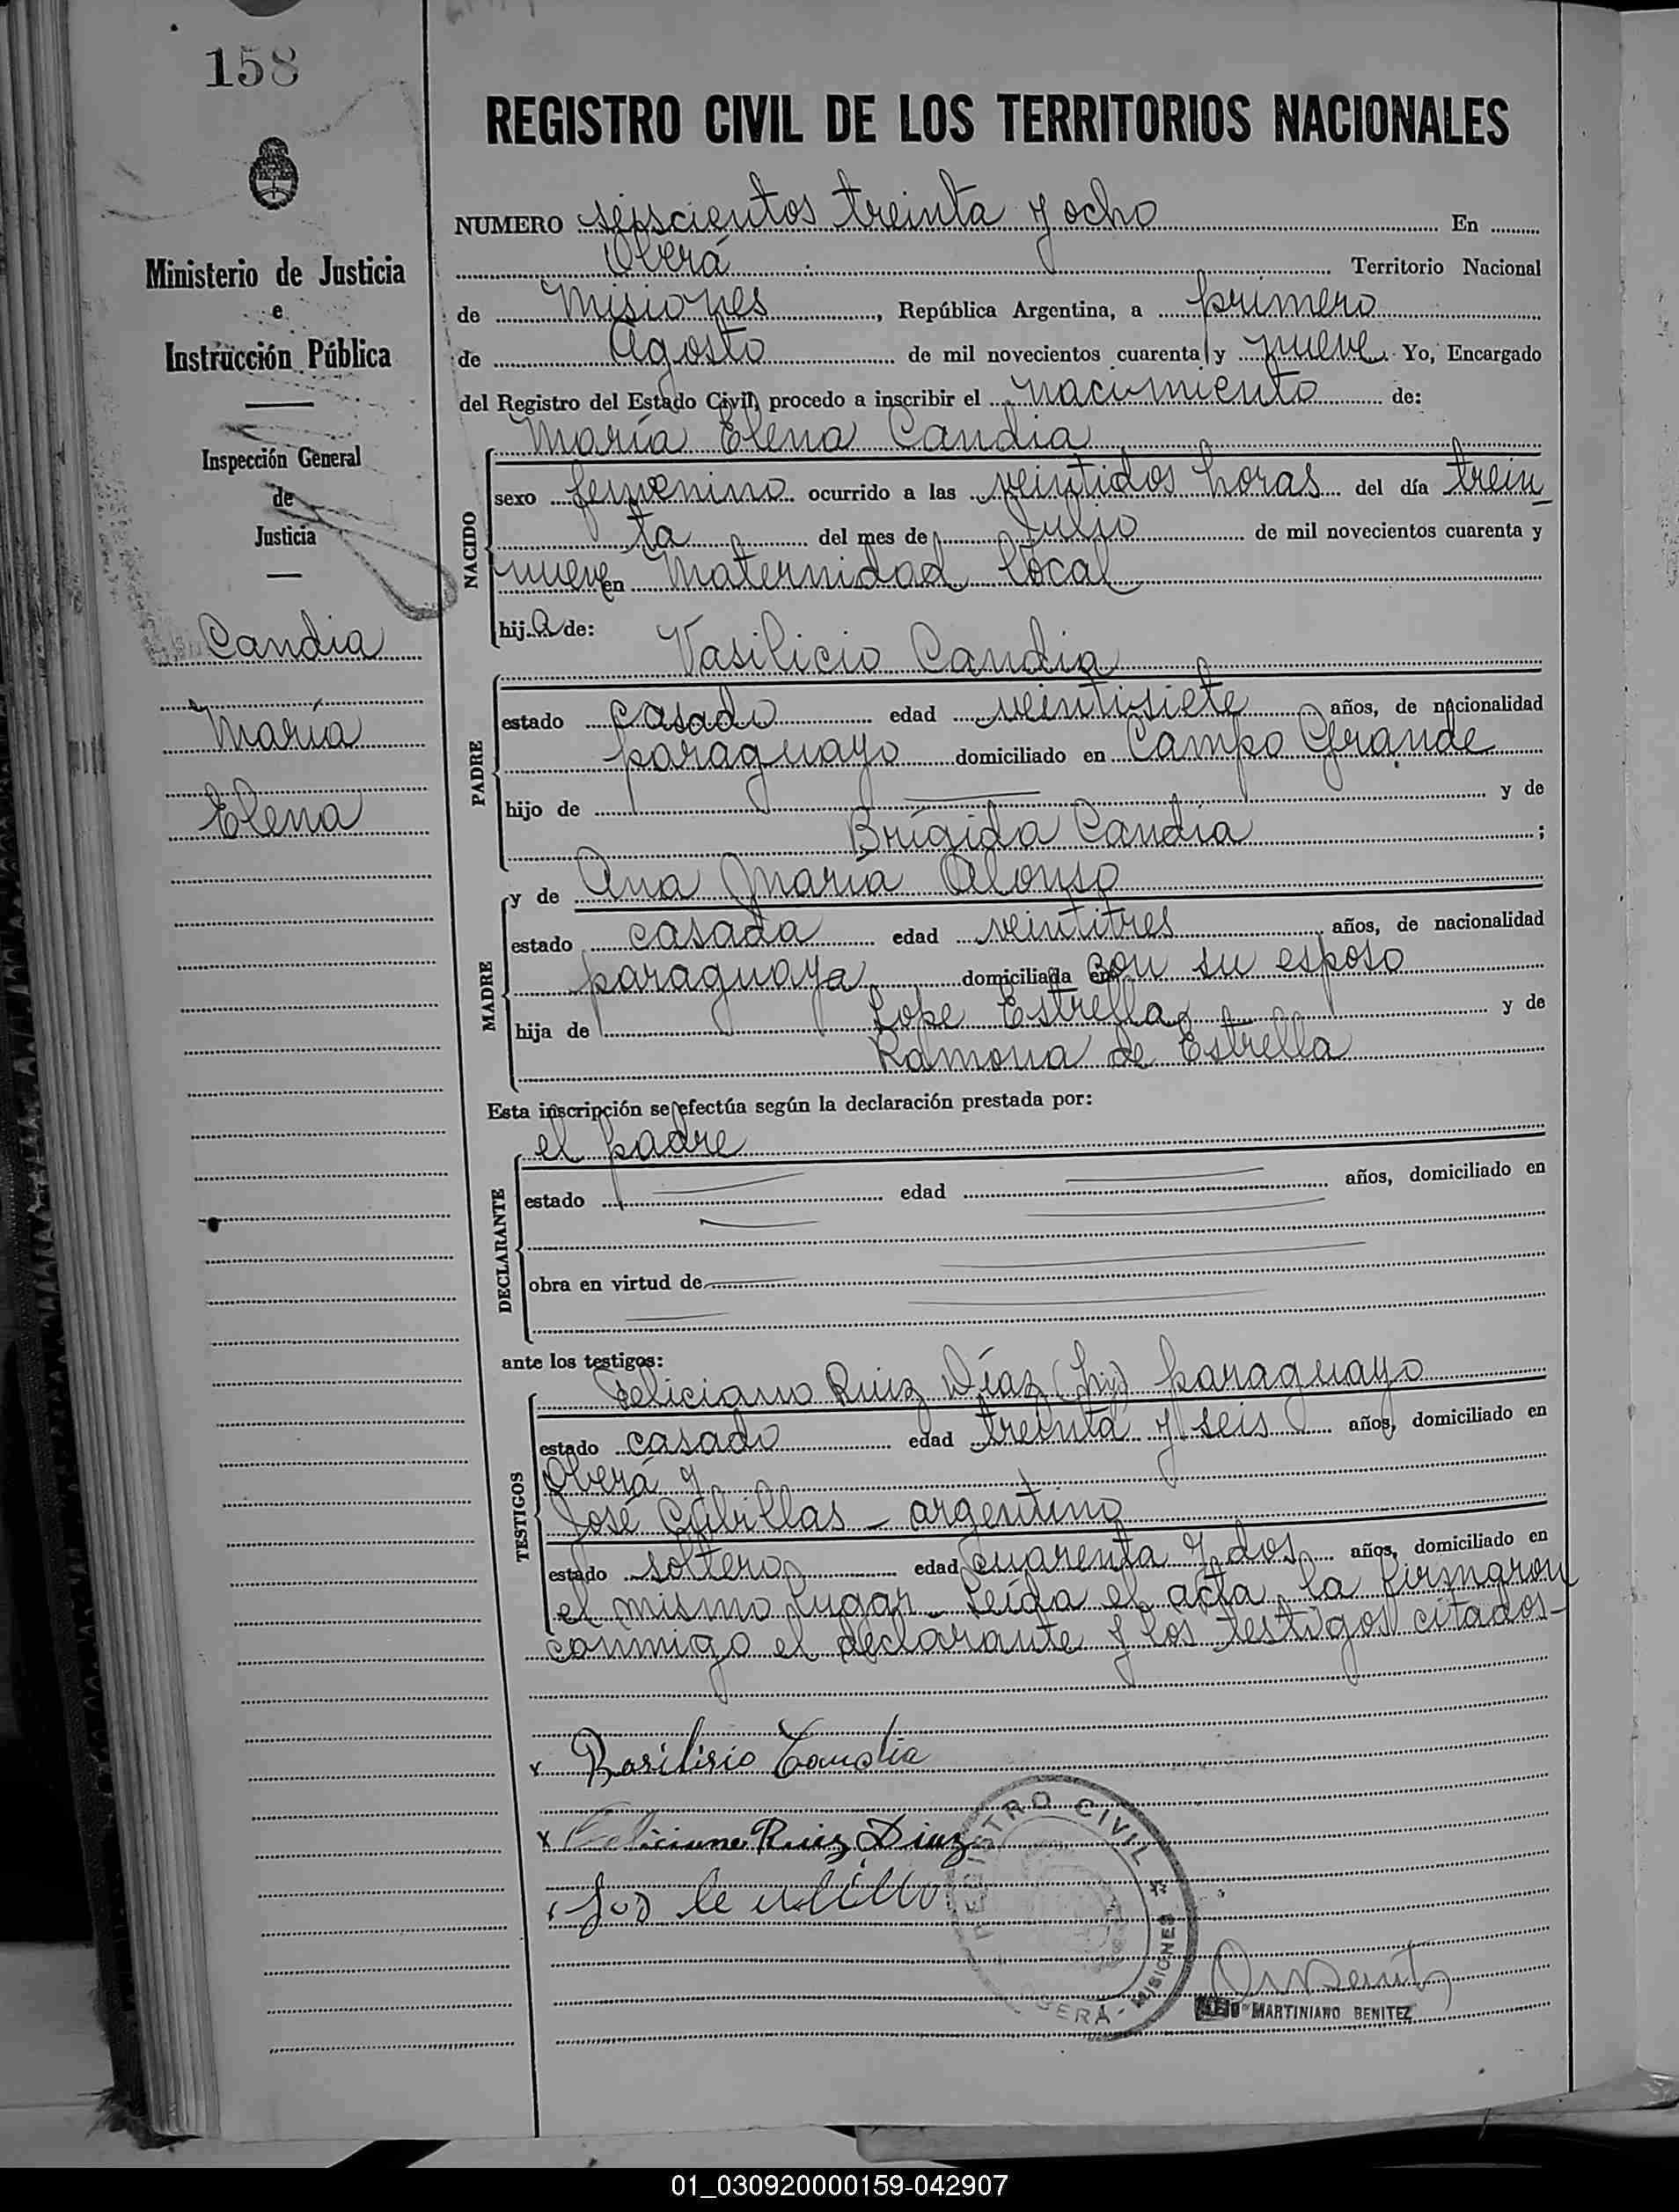 158
REGISTRO CIVIL DE LOS TERRITORIOS NACIONALES
NUMERO seiscientos treinta y ocho En
Oberá Territorio Nacional
de Misiones, República Argentina, a primero
de Agosto de mil novecientos cuarenta y nueve. Yo, Encargado
del Registro del Estado Civil, procedo a inscribir el nacimiento de:
María Elena Candia
NACIDO
sexo femenino ocurrido a las veintidos horas del día trein
ta del mes de Julio de mil novecientos cuarenta y
nueve en Maternidad local
hija de:
Vasilicio Candia
PADRE
estado casado edad veintisiete años, de nacionalidad
paraguayo domiciliado en Campo Grande
hijo de y de
Brígida Candia ;
y de Ana María Alonso
MADRE
estado casada edad veintitres años, de nacionalidad
paraguaya domiciliada en con su esposo
hija de Lope Estrella y de
Ramona de Estrella
Esta inscripción se efectúa según la declaración prestada por:
el padre
DECLARANTE
estado edad años, domiciliado en
obra en virtud de
ante los testigos:
Feliciano Ruiz Díaz (hijo) paraguayo
TESTIGOS
estado casado edad treinta y seis años, domiciliado en
Oberá y
José Cubillas - argentino
estado soltero edad cuarenta y dos años, domiciliado en
el mismo lugar - Leída el acta, la firmaron
conmigo el declarante y los testigos citados-
x Basilisio Candia
x Feliciano Ruiz Diaz
REGISTRO CIVIL
OBERA - MISIONES
MARTINIANO BENITEZ
Ministerio de Justicia
e
Instrucción Pública
Inspección General
de
Justicia
Candia
María
Elena
01_030920000159-042907